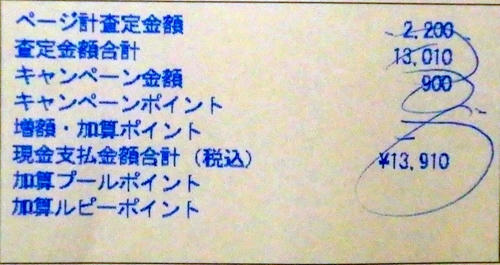 ページ計査定金額 2,200
査定金額合計 13,010
キャンペーン金額 900
キャンペーンポイント
増額・加算ポイント
現金支払金額合計（税込） ¥13,910
加算プールポイント
加算ルピーポイント